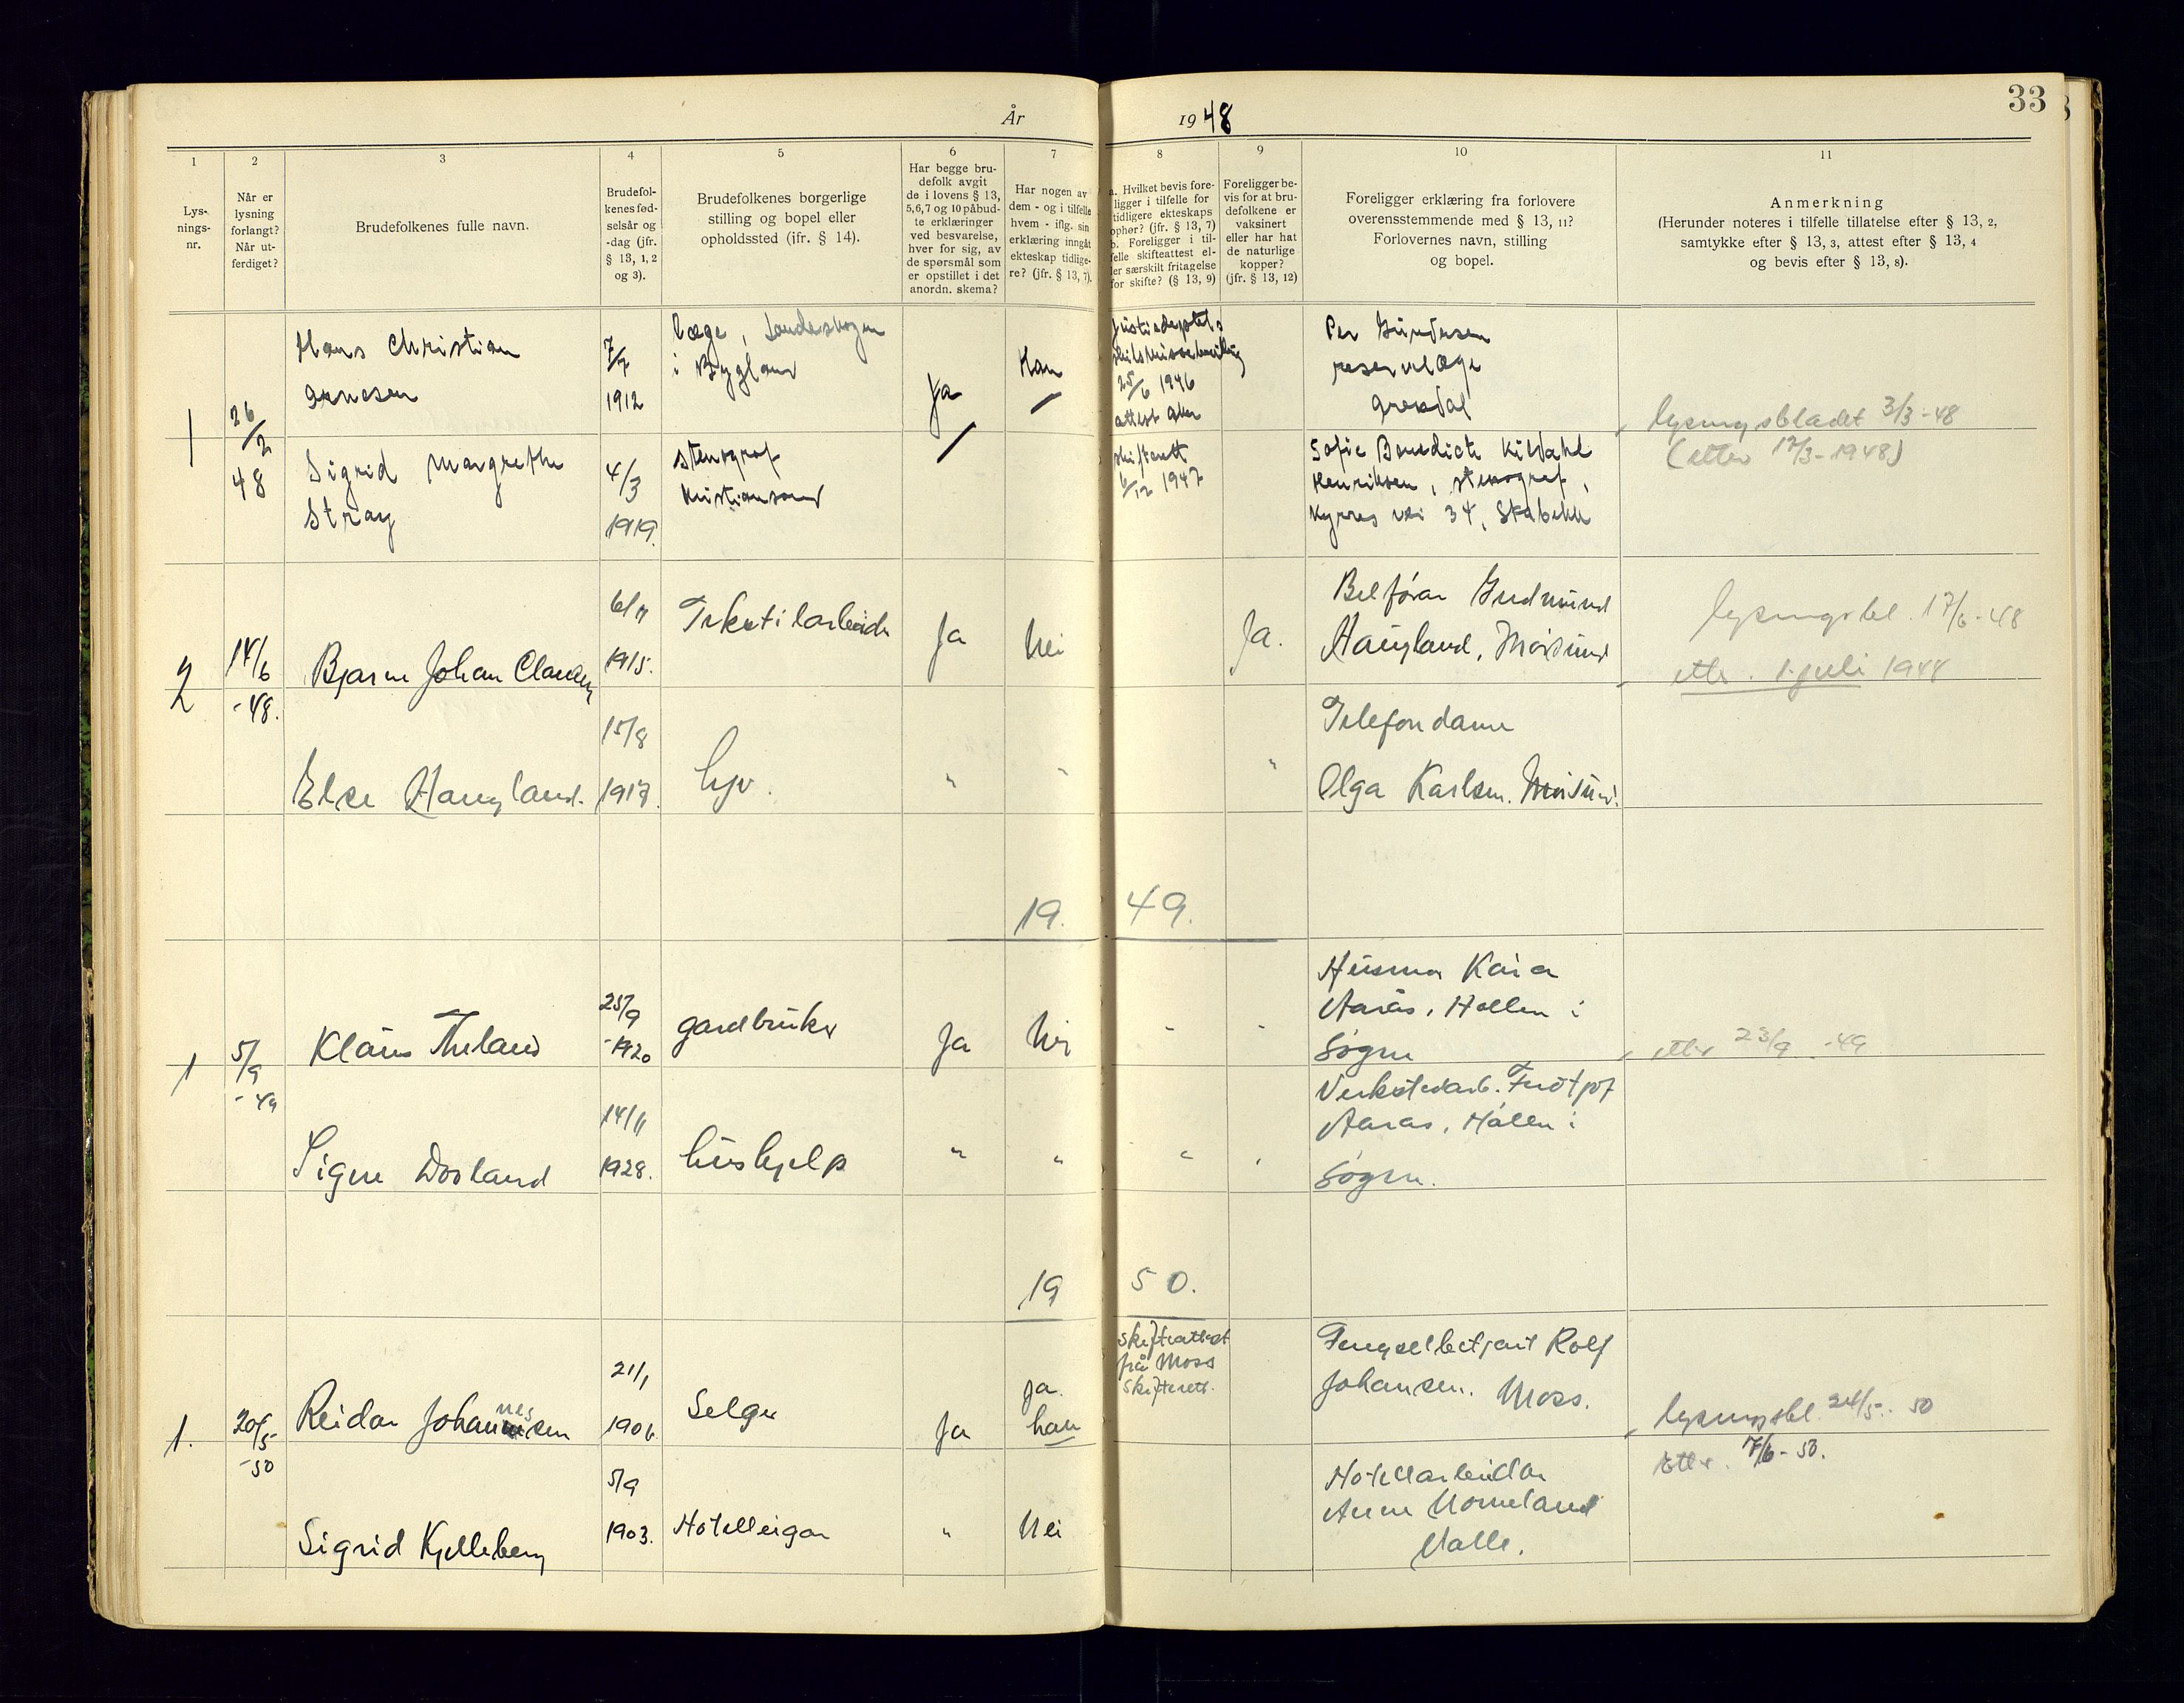 År 1948
33
1
2
3
4
5
6
7
8
9
10
11
Lys-
nings-
nr.
Når er
lysning
forlangt?
Når ut-
ferdiget?
Brudefolkenes fulle navn.
Brudefol-
kenes fød-
selsår og
-dag (jfr.
§ 13, 1, 2
og 3).
Brudefolkenes borgerlige
stilling og bopel eller
opholdssted (ifr. § 14).
Har begge bru-
defolk avgit
de i lovens § 13,
5,6,7 og 10 påbud-
te erklæringer
ved besvarelse,
hver for sig, av
de spørsmål som
er opstillet i det
anordn. skema?
Har nogen av
dem - og i tilfelle
hvem - iflg. sin
erklæring inngåt
ekteskap tidlige-
re? (jfr. § 13, 7).
a. Hvilket bevis fore-
ligger i tilfelle for
tidligere ekteskaps
ophør? (jfr. § 13, 7)
b. Foreligger i til-
felle skifteattest el-
ler særskilt fritagelse
for skifte? (§ 13, 9)
Foreligger be-
vis for at bru-
defolkene er
vaksinert
eller har hat
de naturlige
kopper?
(jfr. § 13, 12)
Foreligger erklæring fra forlovere
overensstemmende med § 13, 11?
Forlovernes navn, stilling
og bopel.
Anmerkning
(Herunder noteres i tilfelle tillatelse efter § 13, 2,
samtykke efter § 13, 3, attest efter § 13, 4
og bevis efter § 13, 8).
1
26/2
48
Hans Christian
Arnesen
7/7
1912
Læge,
i Bygland
Ja
Han
25/6 1946
attest
Per
reservelæge
Grendal
lysningsbladet 3/3-48
(etter 17/3-1948)
Sigrid Margrethe
Stray
4/3
1919.
Stenograf
Kristiansand
skifterett
6/12 1947
Sofie Benedicte Kildahl
Henriksen, stenograf,
Kyrres vei 34, Stabekk
2
14/6
-48.
Bjarne Johan
1915.
Tekstilarbeider
Ja
Nei
Ja.
Gudmund
Haugland, Mosjund
lysningsbl. 17/6-48
etter 1. juli 1948
Else Haugland.
15/8
1917.
hjv.
"
"
"
Telefondame
Olga Karlsen.
1949.
1
5/9
-49
Klaus
25/9
-1920
gardbruker
Ja
Nei
-
-
Husmor Kaia
Aarås, Høllen i
Søgne
etter 23/9 -49
Signe Dosland
14/11
1928.
hushjelp
"
"
"
"
Verkstedarb.
Aarås, Hølen i
Søgne.
1950.
1.
20/5
-50
Reidar Johannessen
21/1
1906
Selger
Ja
Ja.
han
Skifteattest
frå Moss
Skifterett.
Fengselbetjent Rolf
Johansen. Moss.
lysningsbl. 24/5. 50
Etter. 7/6-50.
Sigrid Kjelleberg
5/9
1903.
Hotelleigar
"
Nei
Hotellarbeidar
Anne Homeland
Valle.